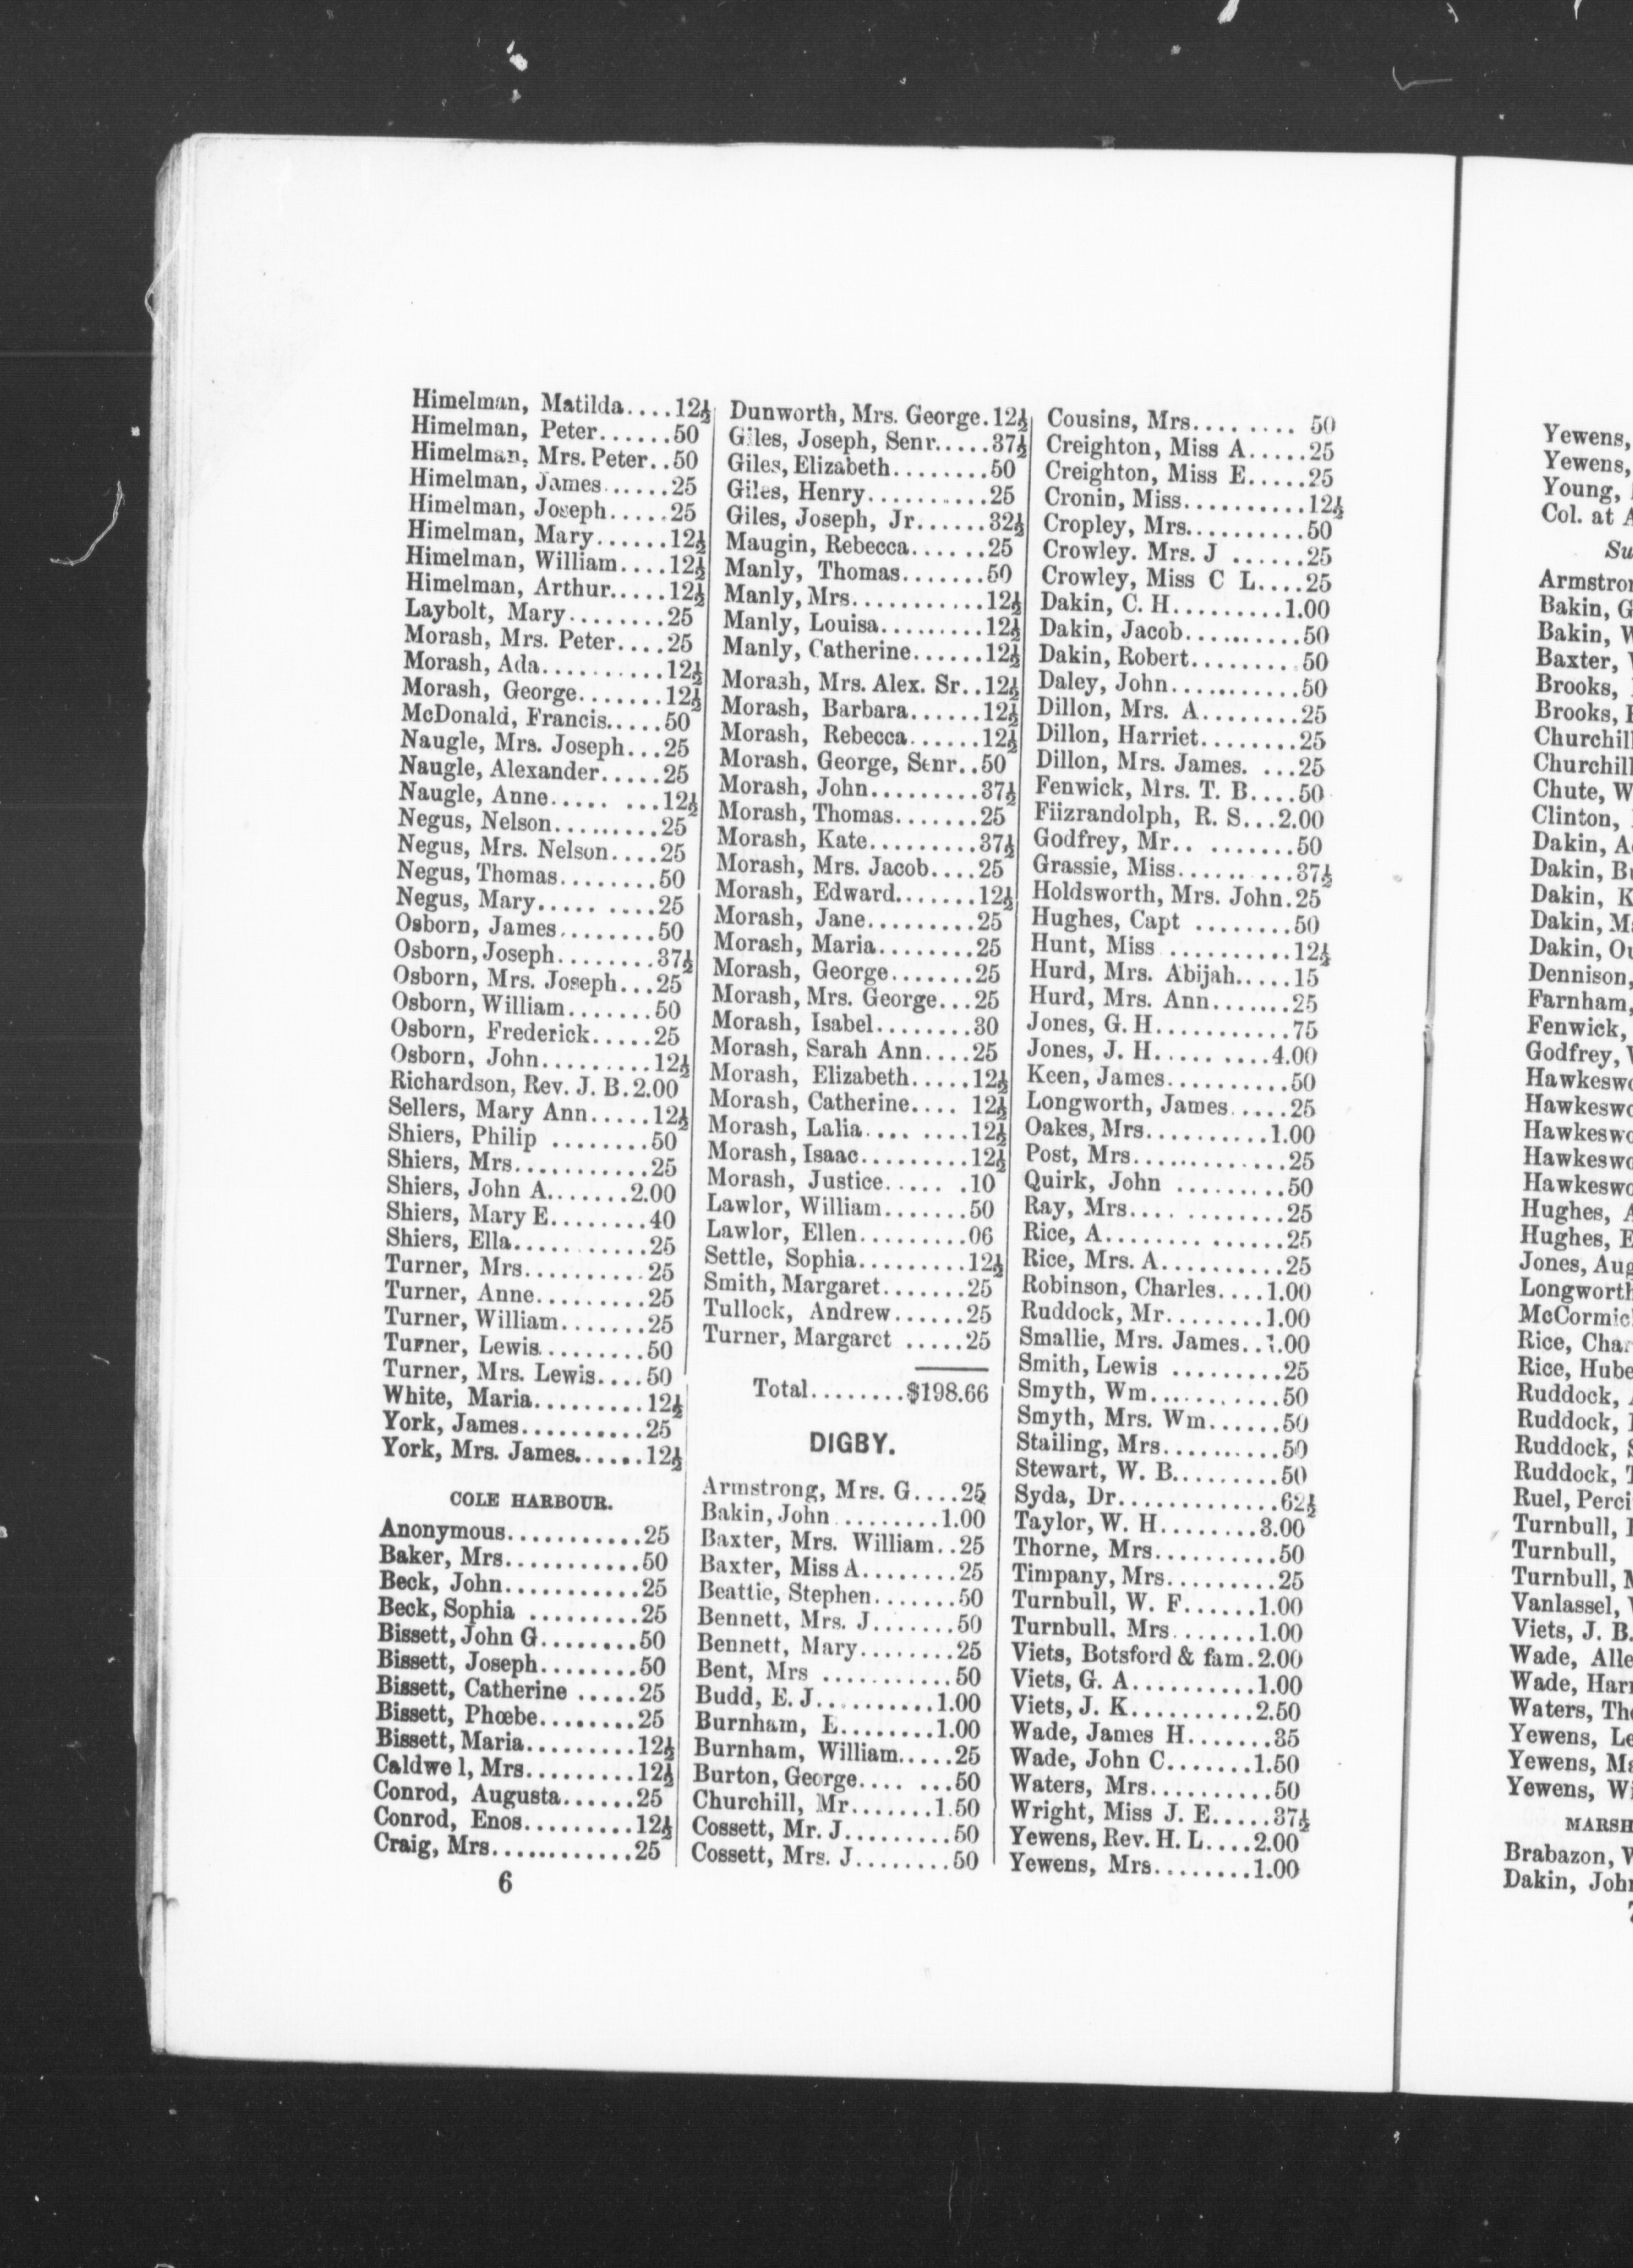 Himelman, Matilda....12½
Himelman, Peter......50
Himelman, Mrs. Peter..50
Himelman, James......25
Himelman, Joseph.....25
Himelman, Mary......12½
Himelman, William....12½
Himelman, Arthur.....12½
Laybolt, Mary........25
Morash, Mrs. Peter....25
Morash, Ada..........12½
Morash, George.......12½
McDonald, Francis.....50
Naugle, Mrs. Joseph...25
Naugle, Alexander.....25
Naugle, Anne..... ...12½
Negus, Nelson.........25
Negus, Mrs. Nelson....25
Negus, Thomas........50
Negus, Mary..... ....25
Osborn, James........50
Osborn, Joseph........37½
Osborn, Mrs. Joseph...25
Osborn, William.......50
Osborn, Frederick.....25
Osborn, John.........12½
Richardson, Rev. J. B.2.00
Sellers, Mary Ann.....12½
Shiers, Philip ........50
Shiers, Mrs...........25
Shiers, John A.......2.00
Shiers, Mary E........40
Shiers, Ella...........25
Turner, Mrs..........25
Turner, Anne.........25
Turner, William.......25
Turner, Lewis.........50
Turner, Mrs. Lewis....50
White, Maria.........12½
York, James..........25
York, Mrs. James......12½
COLE HARBOUR.
Anonymous...........25
Baker, Mrs...........50
Beck, John...........25
Beck, Sophia .........25
Bissett, John G........50
Bissett, Joseph........50
Bissett, Catherine .....25
Bissett, Phœbe........25
Bissett, Maria.........12½
Caldwe l, Mrs.........12½
Conrod, Augusta......25
Conrod, Enos.........12½
Craig, Mrs............25
6
Dunworth, Mrs. George.12½
Giles, Joseph, Senr.....37½
Giles, Elizabeth........50
Giles, Henry..........25
Giles, Joseph, Jr......32½
Maugin, Rebecca......25
Manly, Thomas.......50
Manly, Mrs...........12½
Manly, Louisa.........12½
Manly, Catherine......12½
Morash, Mrs. Alex. Sr..12½
Morash, Barbara......12½
Morash, Rebecca......12½
Morash, George, Senr..50
Morash, John.........37½
Morash, Thomas.......25
Morash, Kate.........37½
Morash, Mrs. Jacob....25
Morash, Edward.......12½
Morash, Jane.........25
Morash, Maria........25
Morash, George.......25
Morash, Mrs. George...25
Morash, Isabel........30
Morash, Sarah Ann....25
Morash, Elizabeth.....12½
Morash, Catherine.... 12½
Morash, Lalia.... ....12½
Morash, Isaac.........12½
Morash, Justice..... .10
Lawlor, William.......50
Lawlor, Ellen.........06
Settle, Sophia.........12½
Smith, Margaret.......25
Tullock, Andrew......25
Turner, Margaret .....25
Total........$198.66
DIGBY.
Armstrong, Mrs. G....25
Bakin, John .........1.00
Baxter, Mrs. William..25
Baxter, Miss A........25
Beattie, Stephen.......50
Bennett, Mrs. J.......50
Bennett, Mary........25
Bent, Mrs ...........50
Budd, E. J..........1.00
Burnham, E........1.00
Burnham, William.....25
Burton, George.... ...50
Churchill, Mr.......1.50
Cossett, Mr. J.........50
Cossett, Mrs. J........50
Cousins, Mrs......... 50
Creighton, Miss A.....25
Creighton, Miss E.....25
Cronin, Miss..........12½
Cropley, Mrs..........50
Crowley. Mrs. J ......25
Crowley, Miss C L....25
Dakin, C. H.........1.00
Dakin, Jacob..........50
Dakin, Robert.........50
Daley, John...........50
Dillon, Mrs. A........25
Dillon, Harriet........25
Dillon, Mrs. James. ...25
Fenwick, Mrs. T. B....50
Fiizrandolph, R. S...2.00
Godfrey, Mr.. .......50
Grassie, Miss...... ...37½
Holdsworth, Mrs. John.25
Hughes, Capt ........50
Hunt, Miss ..........12½
Hurd, Mrs. Abijah.....15
Hurd, Mrs. Ann.......25
Jones, G. H...........75
Jones, J. H..... .....4.00
Keen, James..........50
Longworth, James.....25
Oakes, Mrs..........1.00
Post, Mrs.............25
Quirk, John .........50
Ray, Mrs.... .........25
Rice, A........ .......25
Rice, Mrs. A..........25
Robinson, Charles....1.00
Ruddock, Mr........1.00
Smallie, Mrs. James..1.00
Smith, Lewis .........25
Smyth, Wm...........50
Smyth, Mrs. Wm......50
Stailing, Mrs..........50
Stewart, W. B.........50
Syda, Dr.............62½
Taylor, W. H........3.00
Thorne, Mrs..........50
Timpany, Mrs.........25
Turnbull, W. F......1.00
Turnbull. Mrs.......1.00
Viets, Botsford & fam.2.00
Viets, G. A..........1.00
Viets, J. K..........2.50
Wade, James H.......35
Wade, John C.......1.50
Waters, Mrs..........50
Wright, Miss J. E.....37½
Yewens, Rev. H. L....2.00
Yewens, Mrs........1.00
Yewens,
Yewens,
Young,
Col. at
Bakin,
Bakin,
Baxter,
Brooks,
Brooks,
Chute,
Clinton,
Dakin,
Dakin,
Dakin,
Dakin,
Dakin,
Dennison,
Farnham,
Fenwick,
Godfrey,
Hughes,
Hughes,
Jones,
Rice,
Rice,
Ruddock,
Ruddock,
Ruddock,
Ruddock,
Ruel,
Turnbull,
Turnbull,
Turnbull,
Vanlassel,
Viets, J. B.
Wade,
Wade,
Waters,
Yewens,
Yewens,
Yewens,
Brabazon,
Dakin,